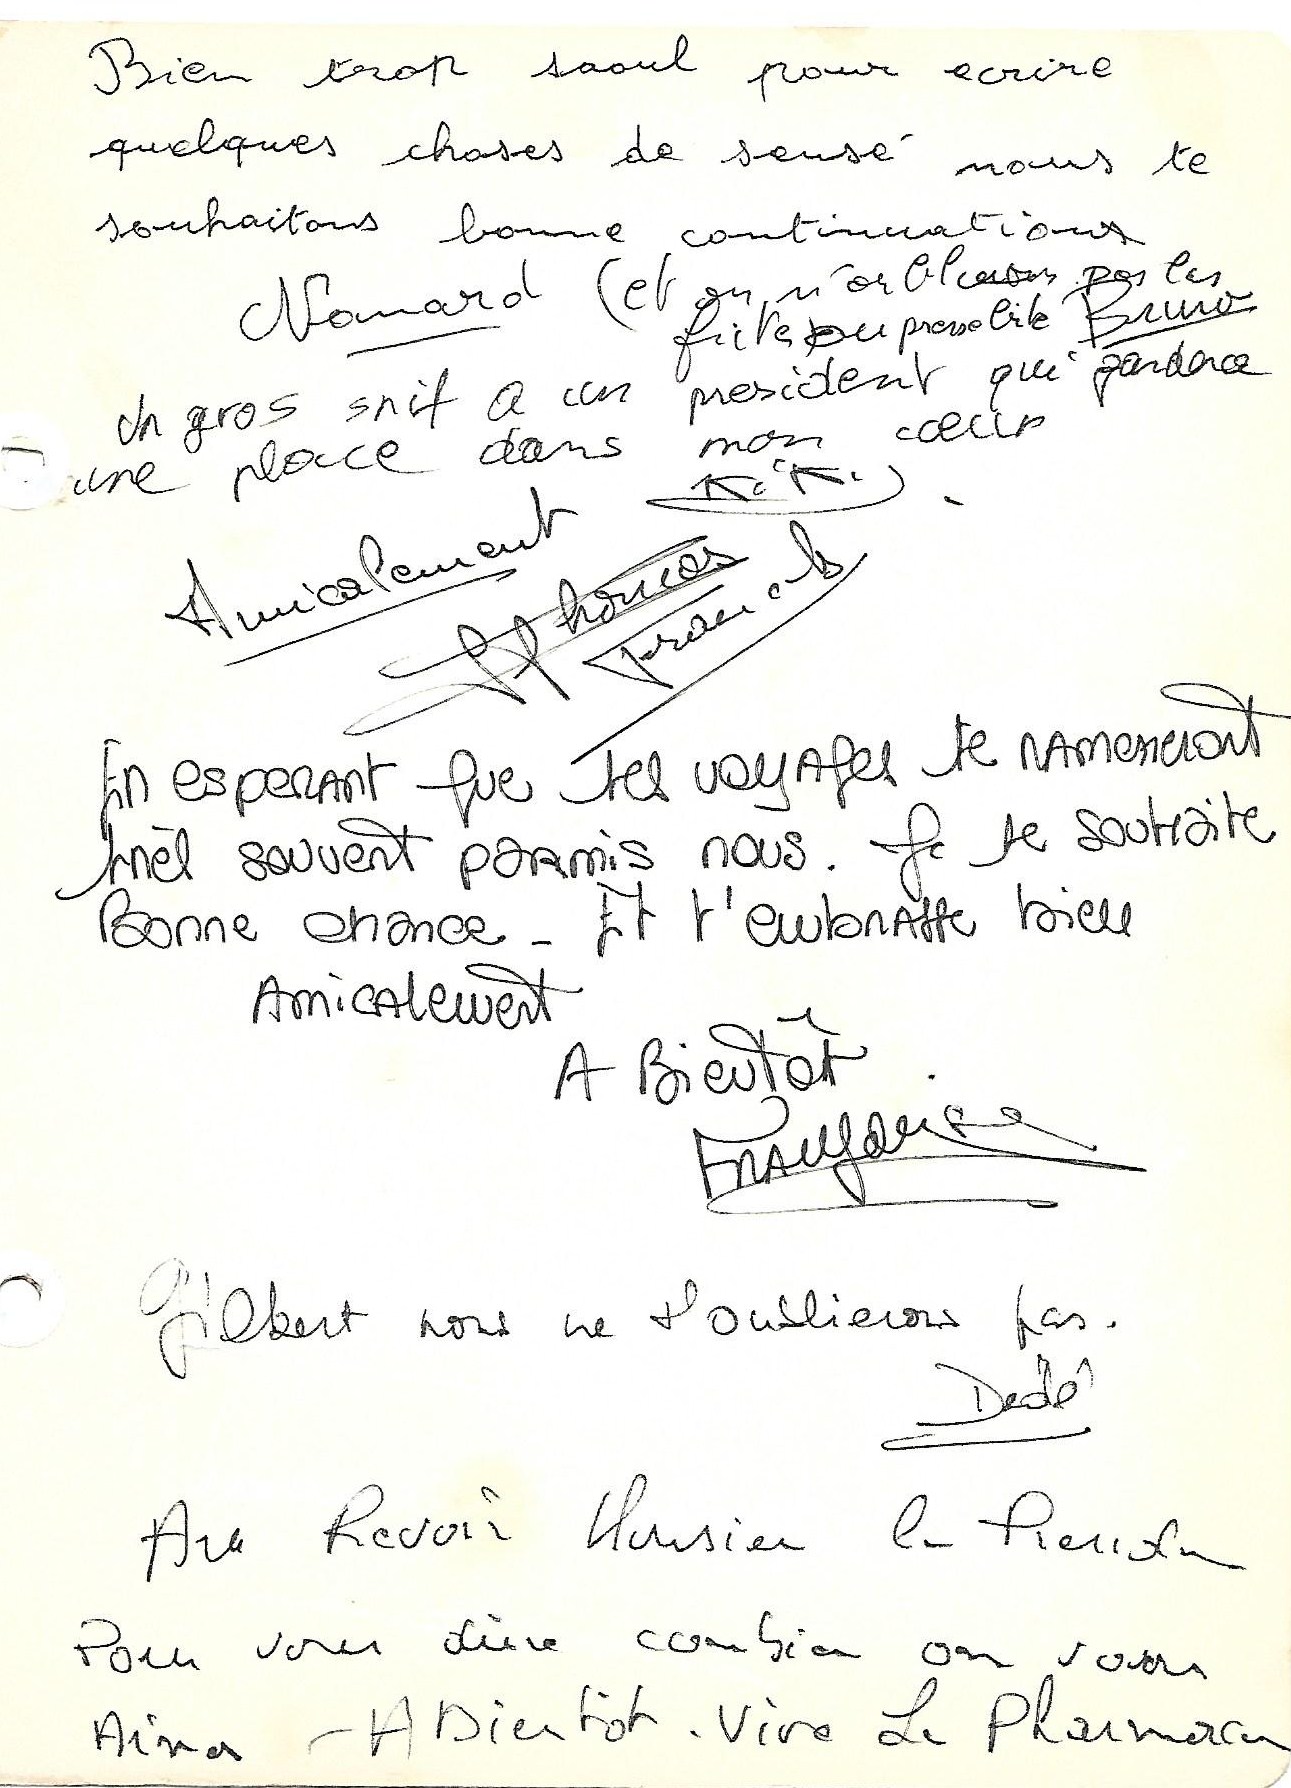 Bien trop saoul pour ecrire
quelques choses de sensé nous te
souhaitons bonne continuations
Nonard (et on n'oublieras pas les
Bruno
Un gros snif a un president qui gardera
une place dans mon cœur
KiKi
Amicalement
Thomas
Francis
En esperant que tes voyages te rameneront
très souvent parmis nous. Je te souhaite
Bonne chance - Et t'embrasse bien
Amicalement
A Bientôt
Françoise
Gilbert nous ne t'oublierons pas.
Dédé
Au Revoir Monsieu le
Pour vous dire combien on vous
Aima - A Bientôt. Vive La Pharmacie